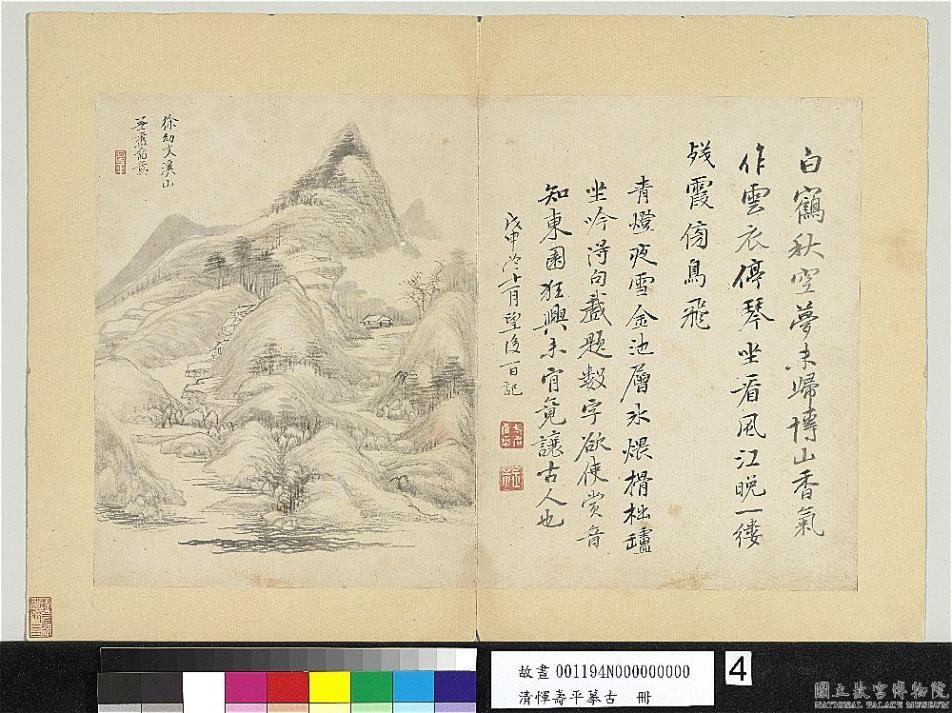 白鶴秋空夢未歸博山香氣
作雲衣停琴坐看風江晚一縷
殘霞傍鳥飛
青燈夜雪金池層冰煨榾柮罏
坐吟得句戲題數字欲使賞音
知東園狂興未肯竟讓古人也
戊申冷十月望後一日記
徐幼文溪山
故畫 001194N000000000
清惲壽平摹古 冊
4
國立故宮博物院
NATIONAL PALACE MUSEUM